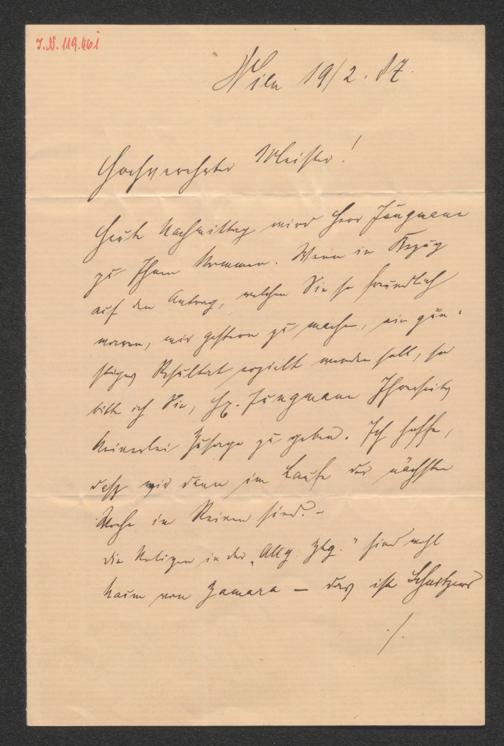 I.N. 119.661
Wien 19/2. 87.
Hochverehrter Meister!
Heute Nachmittag wird Herr Jungmann
zu Ihnen kommen. Wenn in Bezug
auf den Antrag, welchen Sie so freundlich
waren, mir gestern zu machen, ein gün-
stiges Resultat erzielt werden soll, so
bitte ich Sie, H. Jungmann Ihrerseits
keinerlei Zusage zu geben. Ich hoffe,
daß wir dann im Laufe der nächsten
Woche im Reinen sind. –
Die Notizen in der „Allg. Ztg." sind wohl
kaum von Zamara – das ist
./.